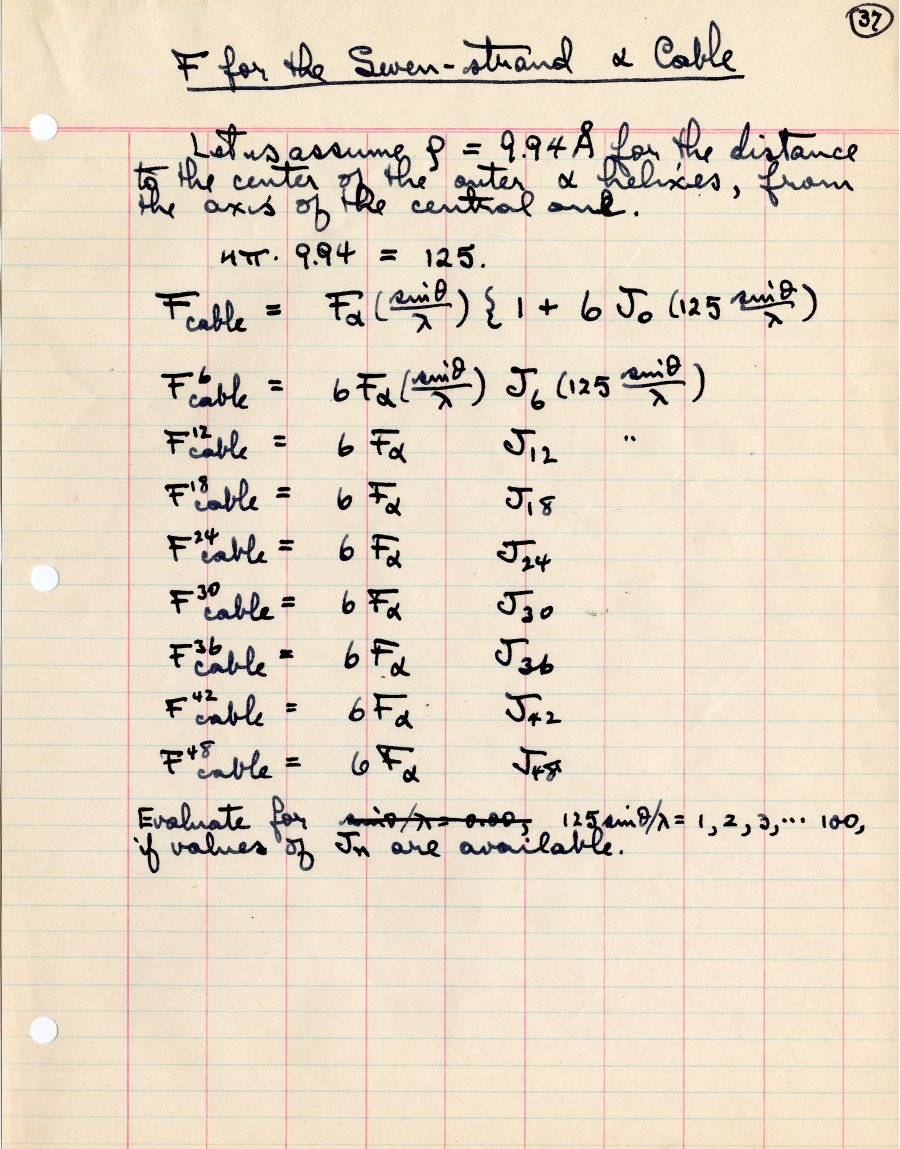 37
F for the Seven-strand α Cable
Let us assume ρ = 9.94 Å for the distance
to the center of the outer α helixes, from
the axis of the central one.
4π · 9.94 = 125.
F cable = Fα (sinθ/λ) { 1 + 6 J₀ (125 sinθ/λ)
F⁶ cable = 6 Fα (sinθ/λ) J₆ (125 sinθ/λ)
F¹² cable = 6 Fα J₁₂ "
F¹⁸ cable = 6 Fα J₁₈
F²⁴ cable = 6 Fα J₂₄
F³⁰ cable = 6 Fα J₃₀
F³⁶ cable = 6 Fα J₃₆
F⁴² cable = 6 Fα J₄₂
F⁴⁸ cable = 6 Fα J₄₈
Evaluate for sinθ/λ = 0.00, 125 sinθ/λ = 1, 2, 3, ... 100,
if values of Jn are available.